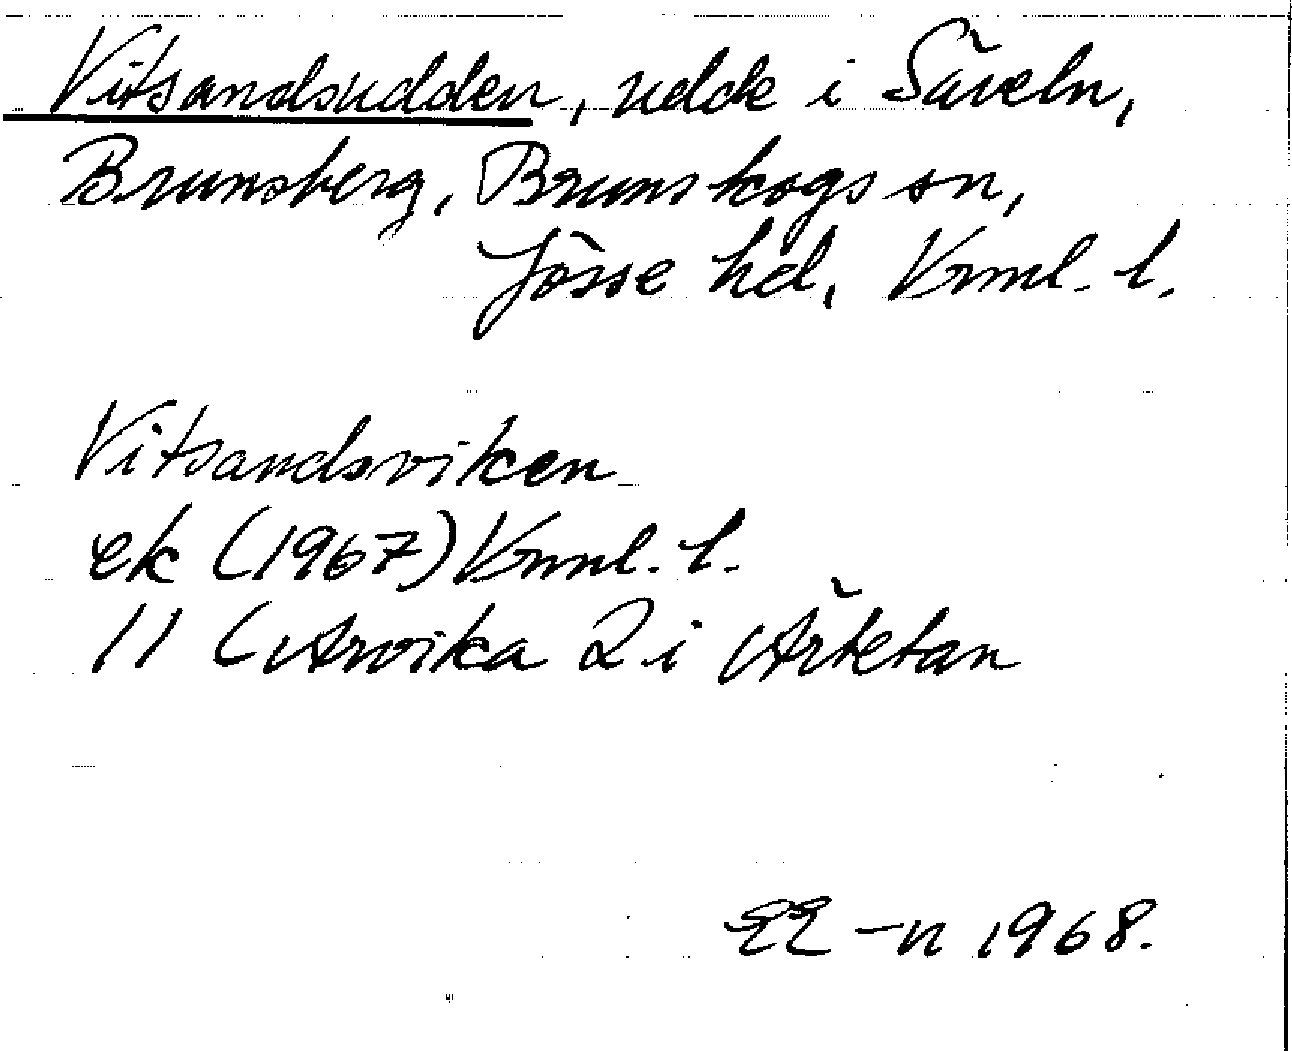 Vitsandsudden, udde i Säveln,
Brunsberg, Brunskogs sn,
Jösse hd, Vrml. l.
Vitsandsviken
ek (1967) Vrml. l.
11 (Arvika 2 i Ärtetan
EE -n 1968.